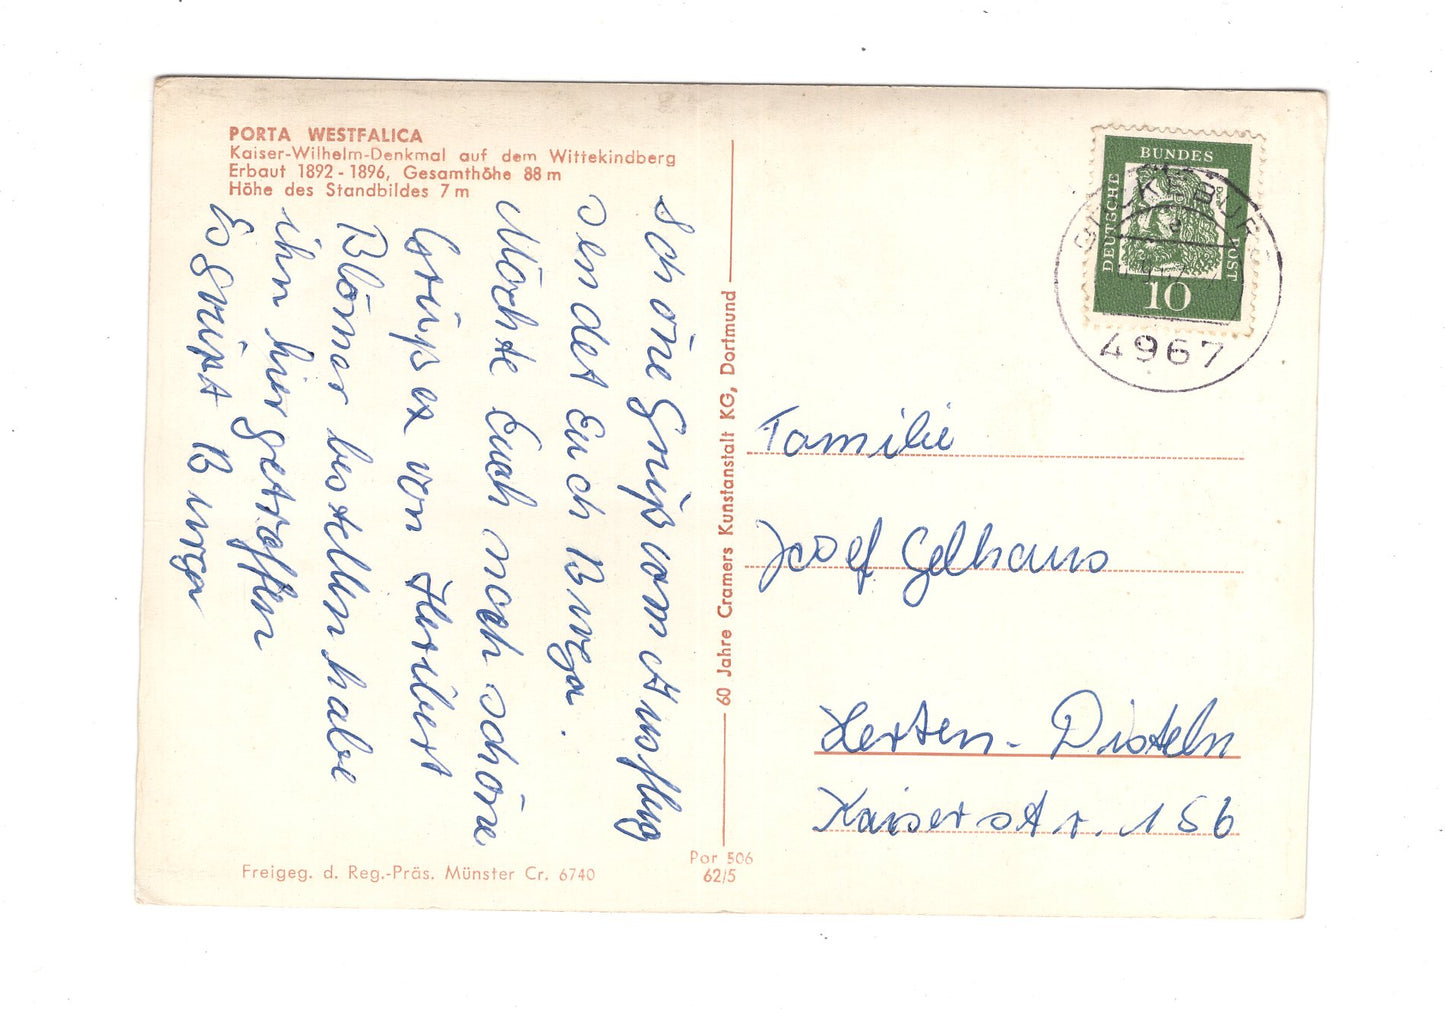 PORTA WESTFALICA
Kaiser-Wilhelm-Denkmal auf dem Wittekindberg
Erbaut 1892 - 1896, Gesamthöhe 88 m
Höhe des Standbildes 7 m
Schöne Grüße vom Ausflug
sendet Euch Burga.
Möchte Euch noch schöne
Grüße von Heribert
Blömer bestellen habe
ihn hier getroffen
Es Grüßt Burga
Freigeg. d. Reg.-Präs. Münster Cr. 6740
60 Jahre Cramers Kunstanstalt KG, Dortmund
Por 506
62/5
DEUTSCHE BUNDES POST
10
BÜCKEBURG
4967
Familie
Josef Gelhaus
Herten - Disteln
Kaiserstr. 156